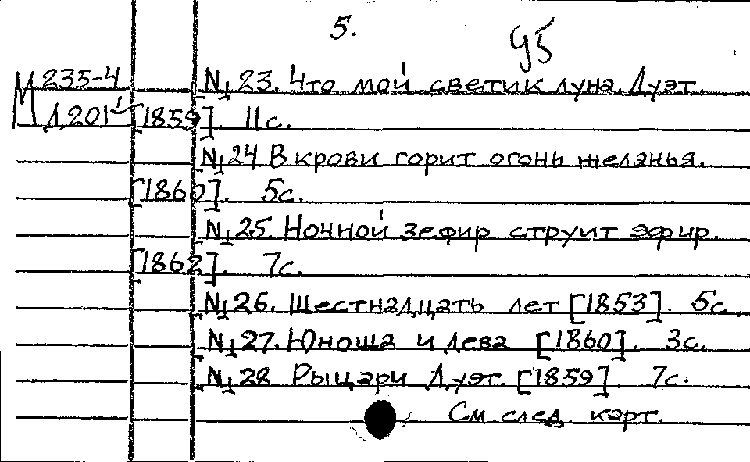 5.
95
М 235-4 №23. Что мой светик луна. Дуэт.
Д 201 [1859]. 11с.
№24 В крови горит огонь желанья.
[1860]. 5с.
№25. Ночной зефир струит эфир.
[1862]. 7с.
№26. Шестнадцать лет [1853]. 5с
№27. Юноша и дева [1860]. 3с.
№28 Рыцари Дуэт. [1859]. 7с.
См след. карт.